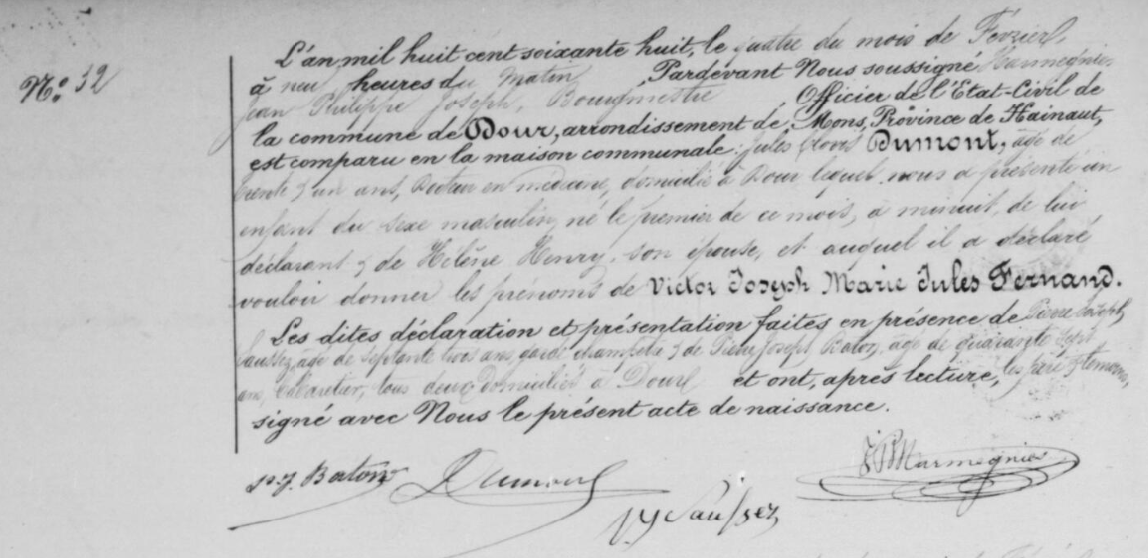 N° 32
L'an mil huit cent soixante huit, le quatre du mois de Février,
à neuf heures du Matin, Pardevant Nous soussigné Harmegnies
Jean Philippe Joseph, Bourgmestre Officier de l'Etat-Civil de
la commune de Dour, arrondissement de Mons, Province de Hainaut,
est comparu en la maison communale: Jules Clovis Dumont, âgé de
trente & un ans, Docteur en médecine, domicilié à Dour lequel nous a présenté un
enfant du sexe masculin, né le premier de ce mois, à minuit, de lui
déclarant & de Hélène Henry, son épouse, et auquel il a déclaré
vouloir donner les prénoms de Victor Joseph Marie Jules Fernand.
Les dites déclaration et présentation faites en présence de Pierre Joseph
Saussez, âgé de septante trois ans, garde champêtre & de Pierre Joseph Baton, âgé de quarante sept
ans, Cabaretier, tous deux domiciliés à Dour et ont, après lecture, les père & témoins,
signé avec Nous le présent acte de naissance.
P. J. Baton Dumont JPHarmegnies
P J Saussez